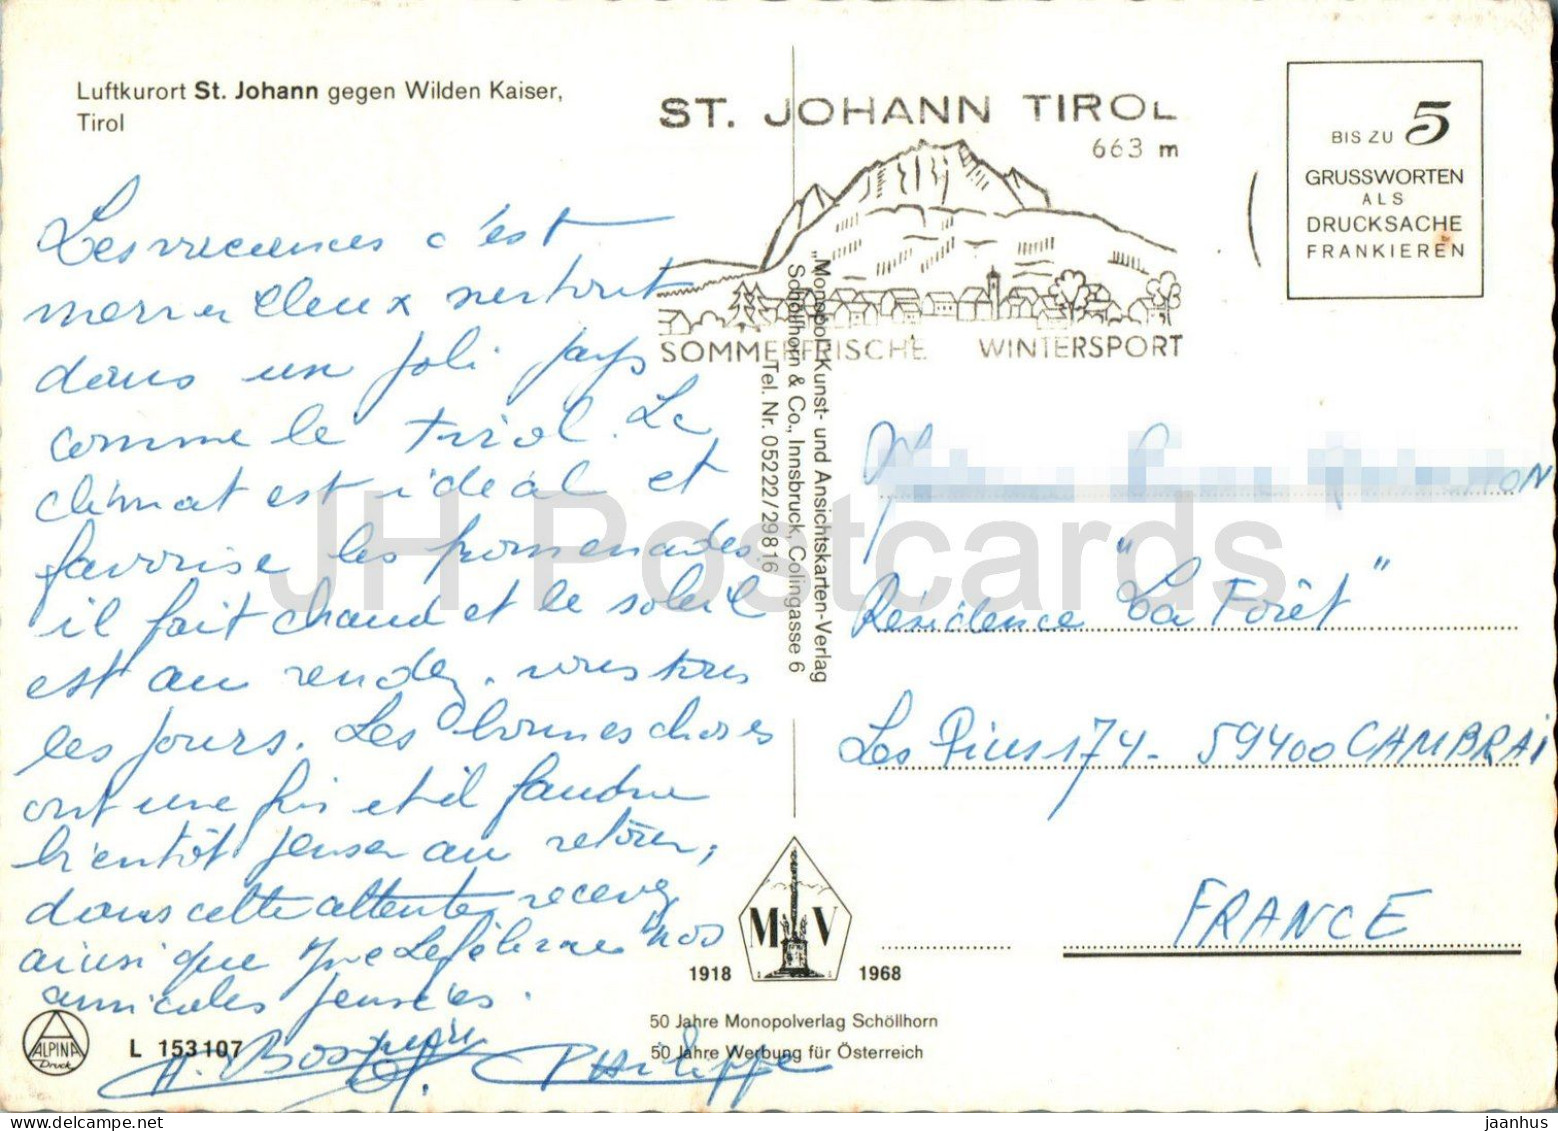 Luftkurort St. Johann gegen Wilden Kaiser,
Tirol
ST. JOHANN TIROL
663 m
SOMMERFRISCHE WINTERSPORT
BIS ZU 5
GRUSSWORTEN
ALS
DRUCKSACHE
FRANKIEREN
Les vacances c'est
merveilleux surtout
dans un joli pays
comme le Tirol. Le
climat est idéal et
favorise les promenades,
il fait chaud et le soleil
est au rendez-vous tous
les jours. Les bonnes choses
ont une fin et il faudra
bientôt penser au retour,
dans cette attente recevez
ainsi que nos
amicales pensées.
Philippe
"Monopol" Kunst- und Ansichtskarten-Verlag
Schöllhorn & Co., Innsbruck, Colingasse 6
Tel. Nr. 05222/29816
Résidence "La Forêt"
Les Pins 174 - 59400 CAMBRAI
FRANCE
M V
1918 1968
50 Jahre Monopolverlag Schöllhorn
50 Jahre Werbung für Österreich
ALPINA
Druck
L 153107
JH Postcards
jaanhus